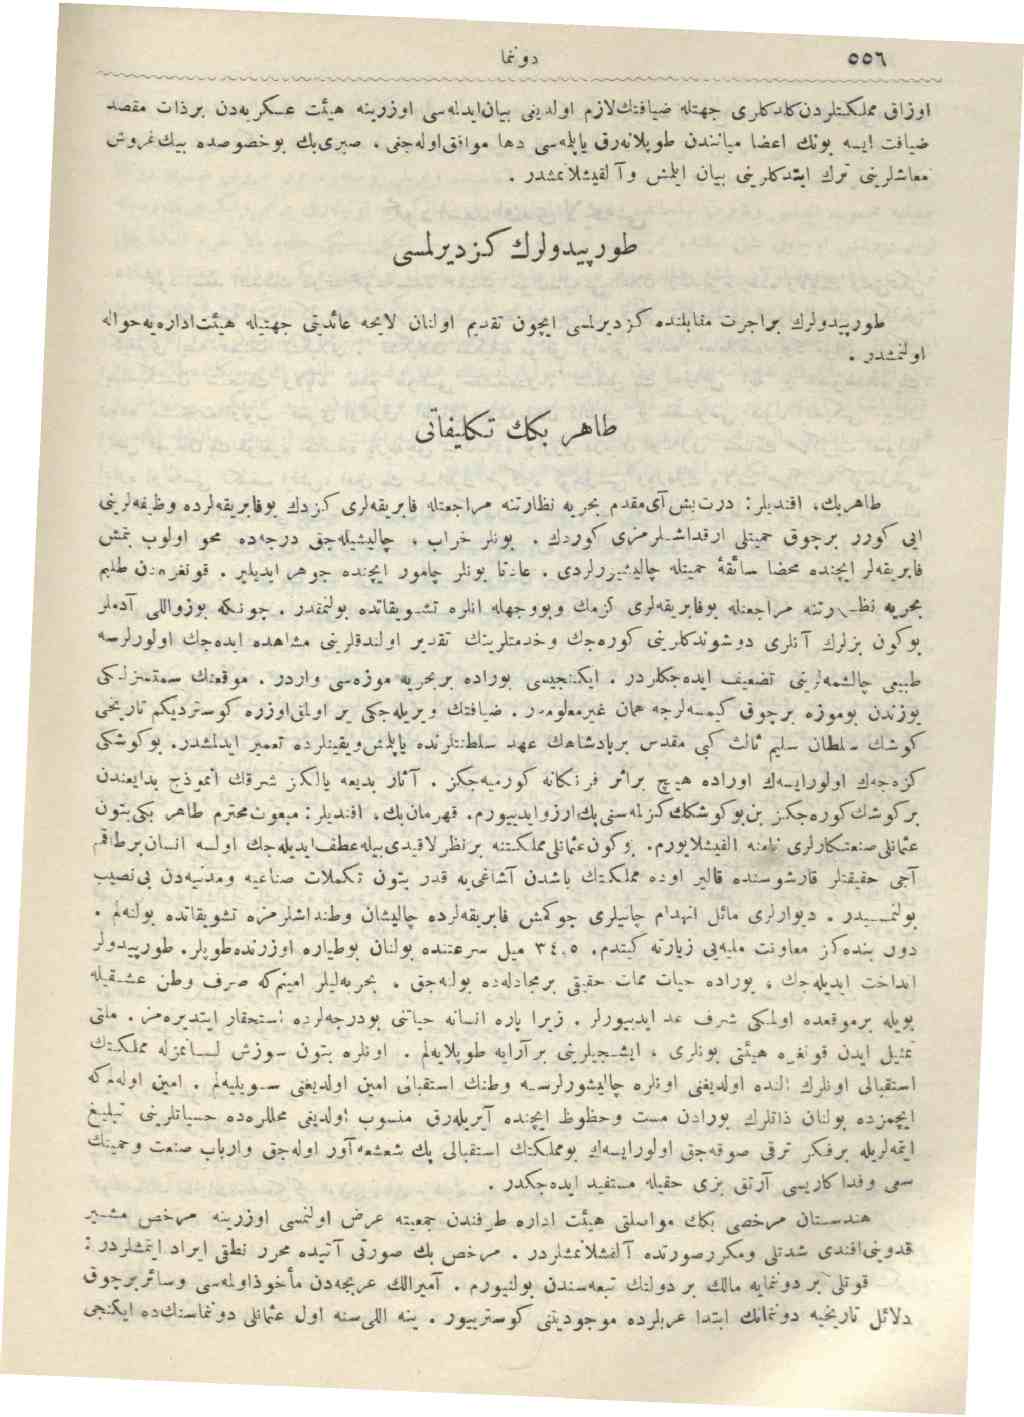 ٥٥٦
دونما
اوزاق مملكتلردن كلدكلرى جهتله ضيافتك لازم اولديغى بيان ايدلمسى اوزرينه هيئت عسكريه دن برذات مقصد
ضيافت ايسه بونك اعضا مياننندن طوپلانه رق ياپلمسى دها موافق اوله جغى ، صبرى بك بوخصوصده بيك غروش
معاشلرينى ترك ايتدكلرينى بيان ايلمش و آلقيشلانمشدر .
طورپيدولرك كزديرلمسى
طورپيدولرك براجرت مقابلنده كزديرلمسى ايچون تقديم اولنان لايحه عائديتى جهتيله هيئت اداره يه حواله
اولنمشدر .
طاهر بكك تكليفاتى
طاهربك، افنديلر : درت بش آى مقدم بحريه نظارتنه مراجعتله فابريقه لرى كزدك بوفابريقه لرده وظيفه لرينى
ايى كورر برچوق حميتلى ارقداشلرمزى كوردك . بونلر خراب ، چاليشيله جق درجه ده محو اولوب بتمش
فابريقه لر ايچنده محضا سائقۀ حميتله چاليشيورلردى . عادتا بونلر چامور ايچنده جوهر ايديلر . قونغره دن طلبم
بحريه نظارتنه مراجعتله بوفابريقه لرى كزمك وبووجهله انلره تشويقاتده بولنمقدر . چونكه بوزواللى آدملر
بوكون بزلرك آنلرى دوشوندكلرينى كوره جك وخدمتلرينك تقدير اولندقلرينى مشاهده ايده جك اولورلرسه
طبيعى چالشمه لرينى تضعيف ايده جكلردر . ايكنجيسى بوراده بربحريه موزه سى واردر . موقعنك سمتسزلكى
يوزندن بوموزه برچوق كيمسه لرجه همان غيرمعلومدر . ضيافتك ويريله جكى ير اولمق اوزره كوسترديكم تاريخى
كوشك سلطان سليم ثالث كبى مقدس برپادشاهك عهد سلطنتلرنده ياپلمش ويقينلرده تعمير ايدلمشدر. بوكوشكى
كزه جك اولورايسه ك اوراده هيچ براثر فرنكانه كورميه جكز . آثار بديعه يالكز شرقك انموذج بدايعندن
بركوشك كوره جكز بن بوكوشكك كزلمه سنى پك ارزو ايدييورم. قهرمان بك، افنديلر : مبعوث محترم طاهر بكى بتون
عثمانلى صنعتكارلرى نامنه القيشلايورم. بوكون عثمانلى مملكتنه برنظر لاقيدى بيله عطف ايديله جك اولسه انسان برطاقم
آجى حقيقتلر قارشوسنده قالير اوده مملكتك باشدن آشاغى يه قدر بتون تكملات صناعيه ومدنيه دن بى نصيب
بولنمسيدر . ديوارلرى مائل انهدام چاتيلرى چوكمش فابريقه لرده چاليشان وطنداشلرمزه تشويقاتده بولنه لم .
دون بنده كز معاونت مليه يى زيارته كيتدم. ٣٤،٥ ميل سرعتنده بولنان بوطياره اوزرنده طوپلر. طورپيدولر
انداخت ايديله جك ، بوراده حيات ممات حقيقى برمجادله ده بولنه جق . بحريه ليلر امينم كه صرف وطن عشقيله
بويله برموقعده اولمكى شرف عد ايدييورلر . زيرا پاره انسانه حياتنى بودرجه لرده استحقار ايتديره مز . ملتى
تمثيل ايدن قونغره هيئتى بونلرى ، ايشجيلرينى بر آرايه طوپلايه لم . اونلره بتون سوزش لسانمزله مملكتك
استقبالى اونلرك النده اولديغنى اونلره چاليشورلرسه وطنك استقبالى امين اولديغنى سويليه لم . امين اوله لم كه
ايچمزده بولنان ذاتلرك بورادن مست وحظوظ ايچنده آيريله رق منسوب اولديغى محللره ده حسياتلرينى تبليغ
ايتمه لريله برفكر ترقى صوقه جق اولورايسه ك بومملكتك استقبالى پك شعشعه آور اوله جق وارباب صنعت وحميتك
سعى وفداكاريسى آرتق بزى حقيله مستفيد ايده جكدر .
هندستان مرخصى بكك مواصلتى هيئت اداره طرفندن جمعيته عرض اولنمسى اوزرينه مرخص مشير
قدوينى افندى شدتلى ومكررصورتده آلقشلانمشلردر . مرخص بك صورتى آتيده محرر نطقى ايراد ايتمشلردر :
قوتلى بر دونمايه مالك بر دولتك تبعه سندن بولنيورم . آميرالك عربجه دن مأخوذ اولمه سى وسائر برچوق
دلائل تاريخيه دونمانك ابتدا عربلرده موجوديتنى كوستريبور . ينه اللى سنه اول عثمانلى دونماسنك ده ايكنجى